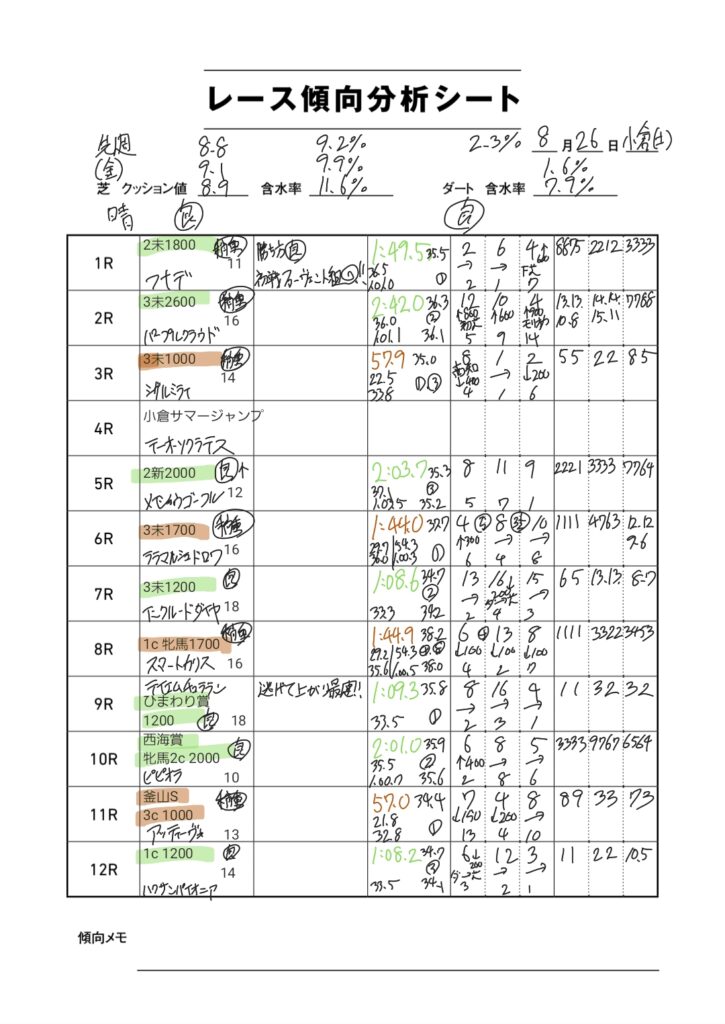 レース傾向分析シート
先週 8.8 9.2% 2.3% 8月26日 小倉(土)
(金) 9.1 9.9% 1.6%
芝 クッション値 8.9 含水率 11.6% ダート 含水率 7.9%
晴 良 良
1R 2未1800 稍重 11 フナデ
勝ち方良
1:49.5 35.5 36.5 1.01.0 ①
2 6 4
→ →
2 1 7
8875 2212 3333
2R 3未2600 稍重 16 パープルクラウド
2:42.0 36.3 36.0 ② 1.01.1 36.1
12 10 4
5 9 14
13.13.10.8 14.14.15.11 7768
3R 3未1000 稍重 14
57.9 35.0 22.5 33.8 ①③
8 1 2
高知 ↓400 → ↓200
4 1 6
55 22 85
4R 小倉サマージャンプ
テーオーソクラテス
5R 2新2000 良↑ 12
2:03.7 35.3 37.1 ③ 1.03.5 35.2
8 11 9
5 7 1
2221 3333 7764
6R 3未1700 稍重 16
1:44.0 37.7 29.7/54.3 36.0/1.00.3 ①
4 8 10
↑300 → →
6 4 8
1111 4763 12.12.9.6
7R 3未1200 良 18 インクルードダイヤ
1:08.6 34.7 ② 33.3 34.2
13 16 15
→ →
2 4 3
65 13.13 8.7
8R 1c 牝馬1700 稍重 16 スマートカリス
1:44.9 38.2 29.2/54.3 35.6/1.00.5 38.0
6 13 8
↓100 ↓100 ↓100
4 2 7
1111 3322 3453
9R ひまわり賞 1200 良 18
逃げて上がり最速!!
1:09.3 35.8 33.5 ①
8 16 4
→ → →
2 3 1
11 32 32
10R 西海賞 牝馬2c 2000 良 10 ピピオラ
2:01.0 35.9 35.5 ② 1.00.7 35.6
6 8 5
↑400 → →
2 8 6
3333 9767 6564
11R 釜山S 3c 1000 稍重 13 アッティーヴォ
57.0 34.4 21.8 32.8 ①
7 4 8
↓150 ↓200 →
13 4 10
89 33 73
12R 1c 1200 良 14 ハクサンパイオニア
1:08.2 34.7 33.5 34.1
6 12 3
ダート → →
3 2 1
11 22 10.5
傾向メモ